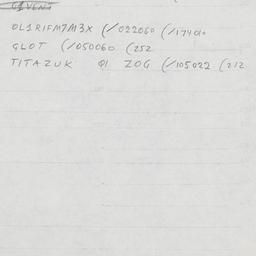 OL1RIFM7M3X (/022060 (/17401
GLOT (/050060 (252
TITAZUK QI ZOG (/105022 (212